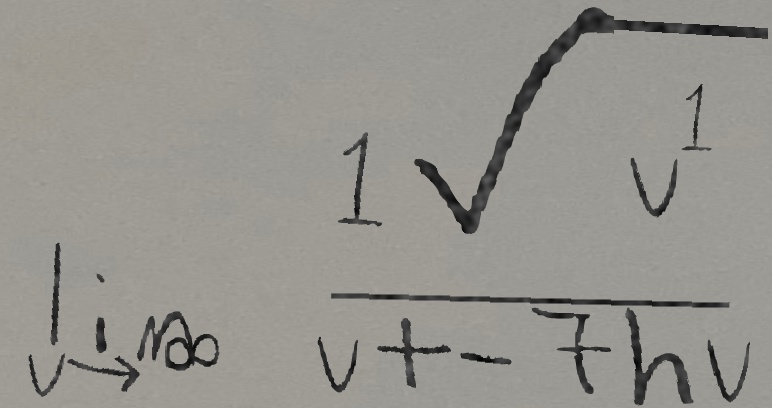 \lim_{v \to \infty} \frac{1 \sqrt{v^{1}}}{v + -7 h v}